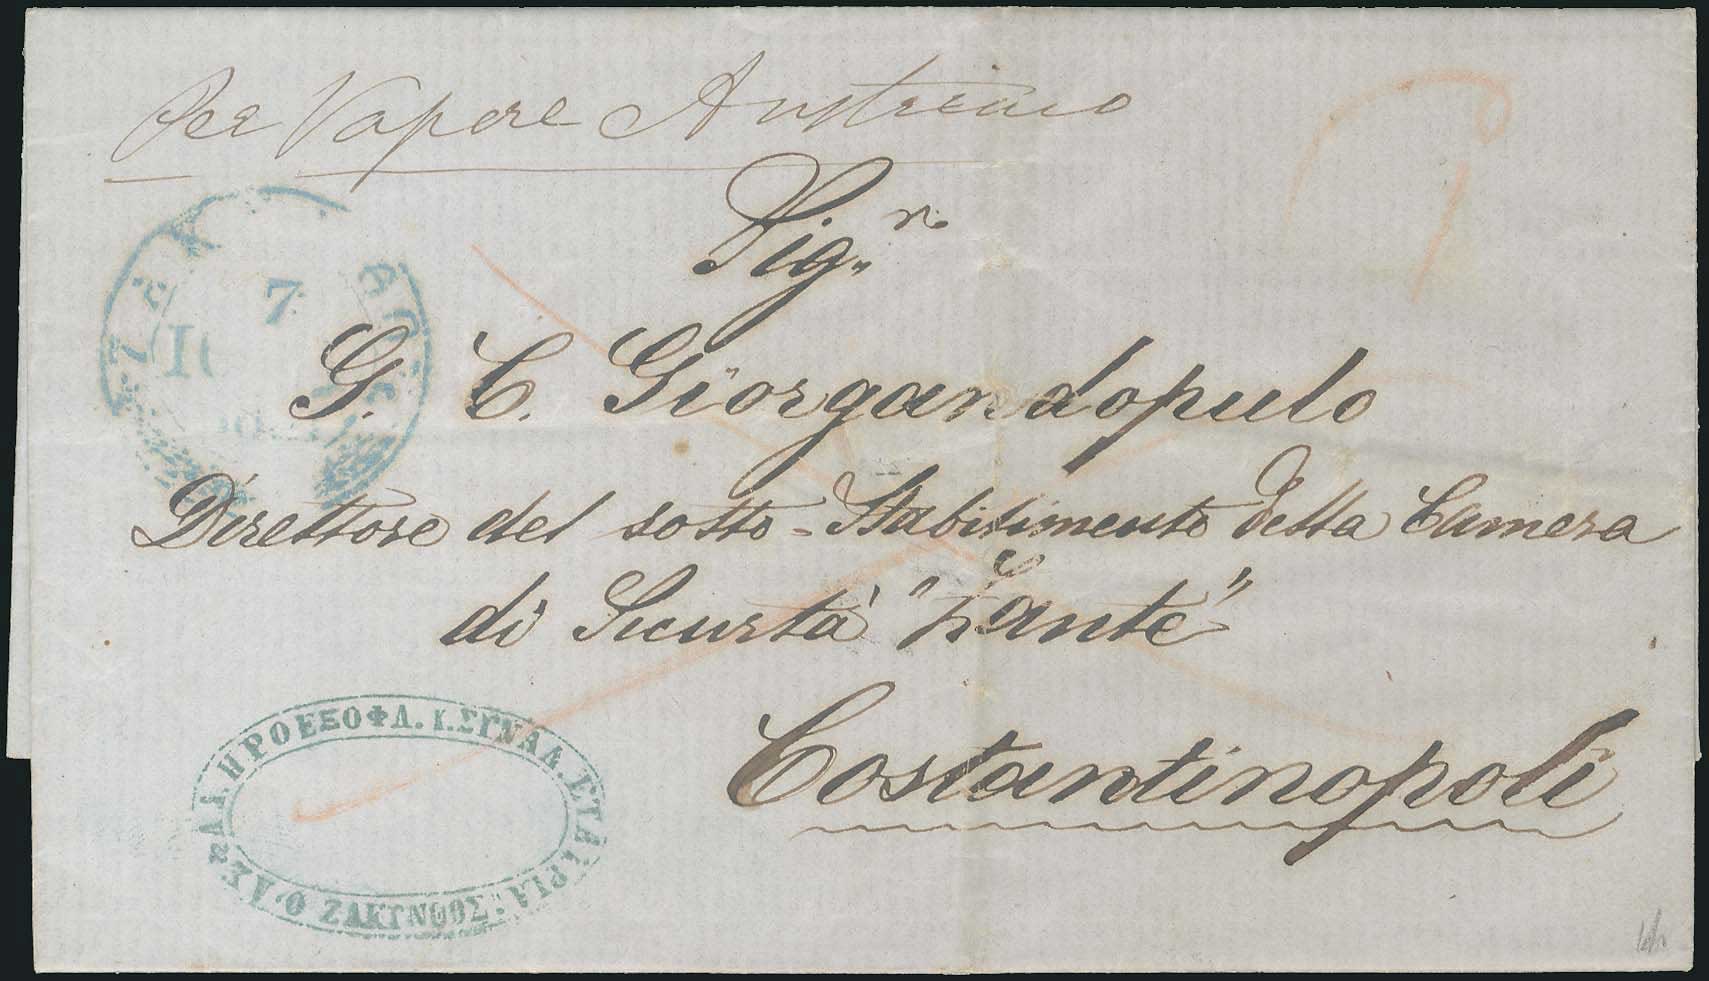 Per Vapore Austriaco
Sigr
G. C. Giorgandopulo
Direttore del sotto-Stabilimento della Camera
di Sicurtà "Zante"
Costantinopoli
7
ΠΡΟΕΞΟΦΛ. Κ. ΣΥΝΑΛ. ΕΤΑΙΡΙΑ.
Ο ΖΑΚΥΝΘΟΣ